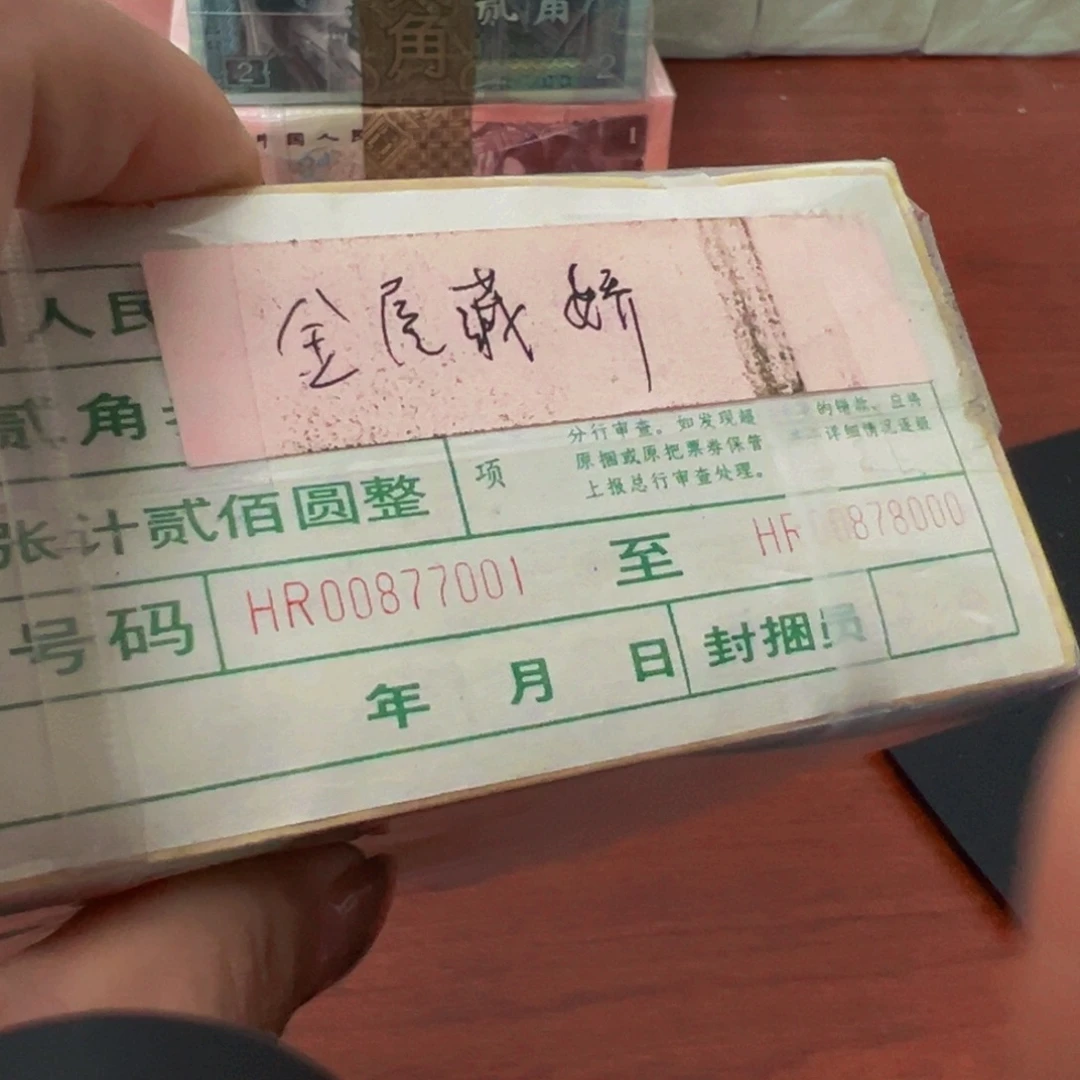 角
贰角
2
2
国人民
1
金屋藏娇
人民
贰角
张计贰佰圆整
项
分行审查。如发现超
原捆或原把票券保管
上报总行审查处理。
的错款、应将
详细情况逐级
号码
HR00877001
至
HR
0878000
年
月
日
封捆员